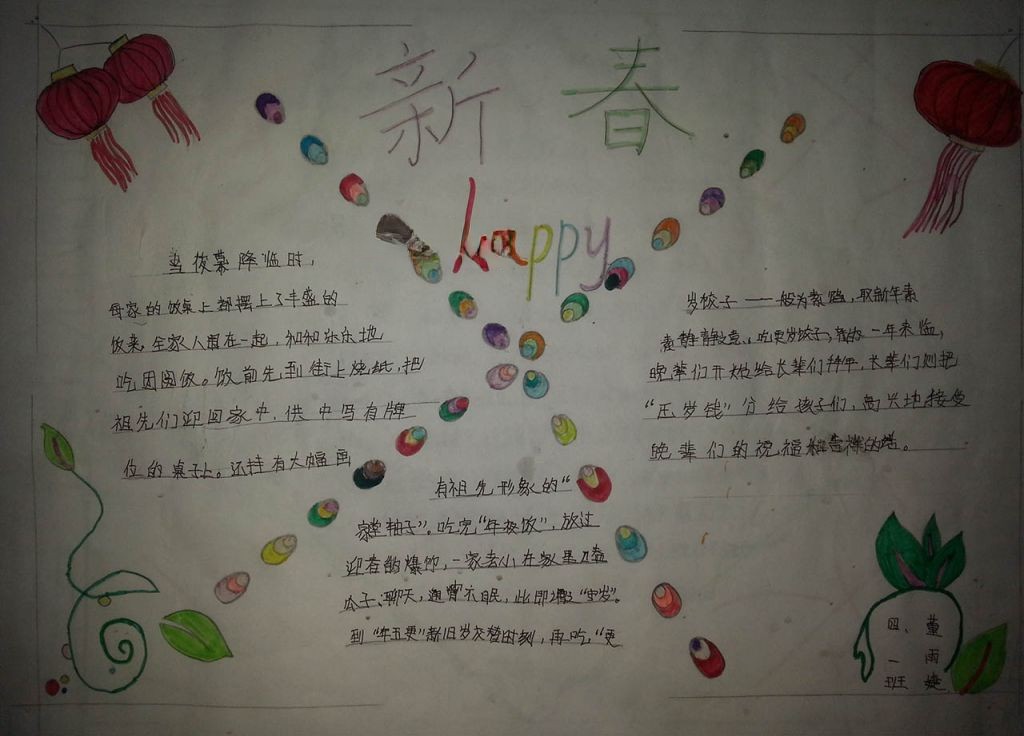 新春
happy
当夜幕降临时，
母家的饭桌上都摆上了丰盛的
饭来，全家人围在一起，和和乐乐地
吃团圆饭。饭前先到街上烧纸，把
祖先们迎回家中，供中写有牌
位的桌子上。还挂有大幅画
有祖先形象的“
家堂轴子”。吃完“年夜饭”，放过
迎春的爆竹，一家老小在家里嗑
瓜子、聊天，通宵不眠，此即
到“年五更”新旧岁交替时刻，再吃“更
岁饺子——般为素馅，取新年素
素静静故意。吃更岁饺子，新的一年来临，
晚辈们开始给长辈们拜年，长辈们则把
“压岁钱”分给孩子们，高兴地接受
晚辈们的祝福
四、一班
董雨婕